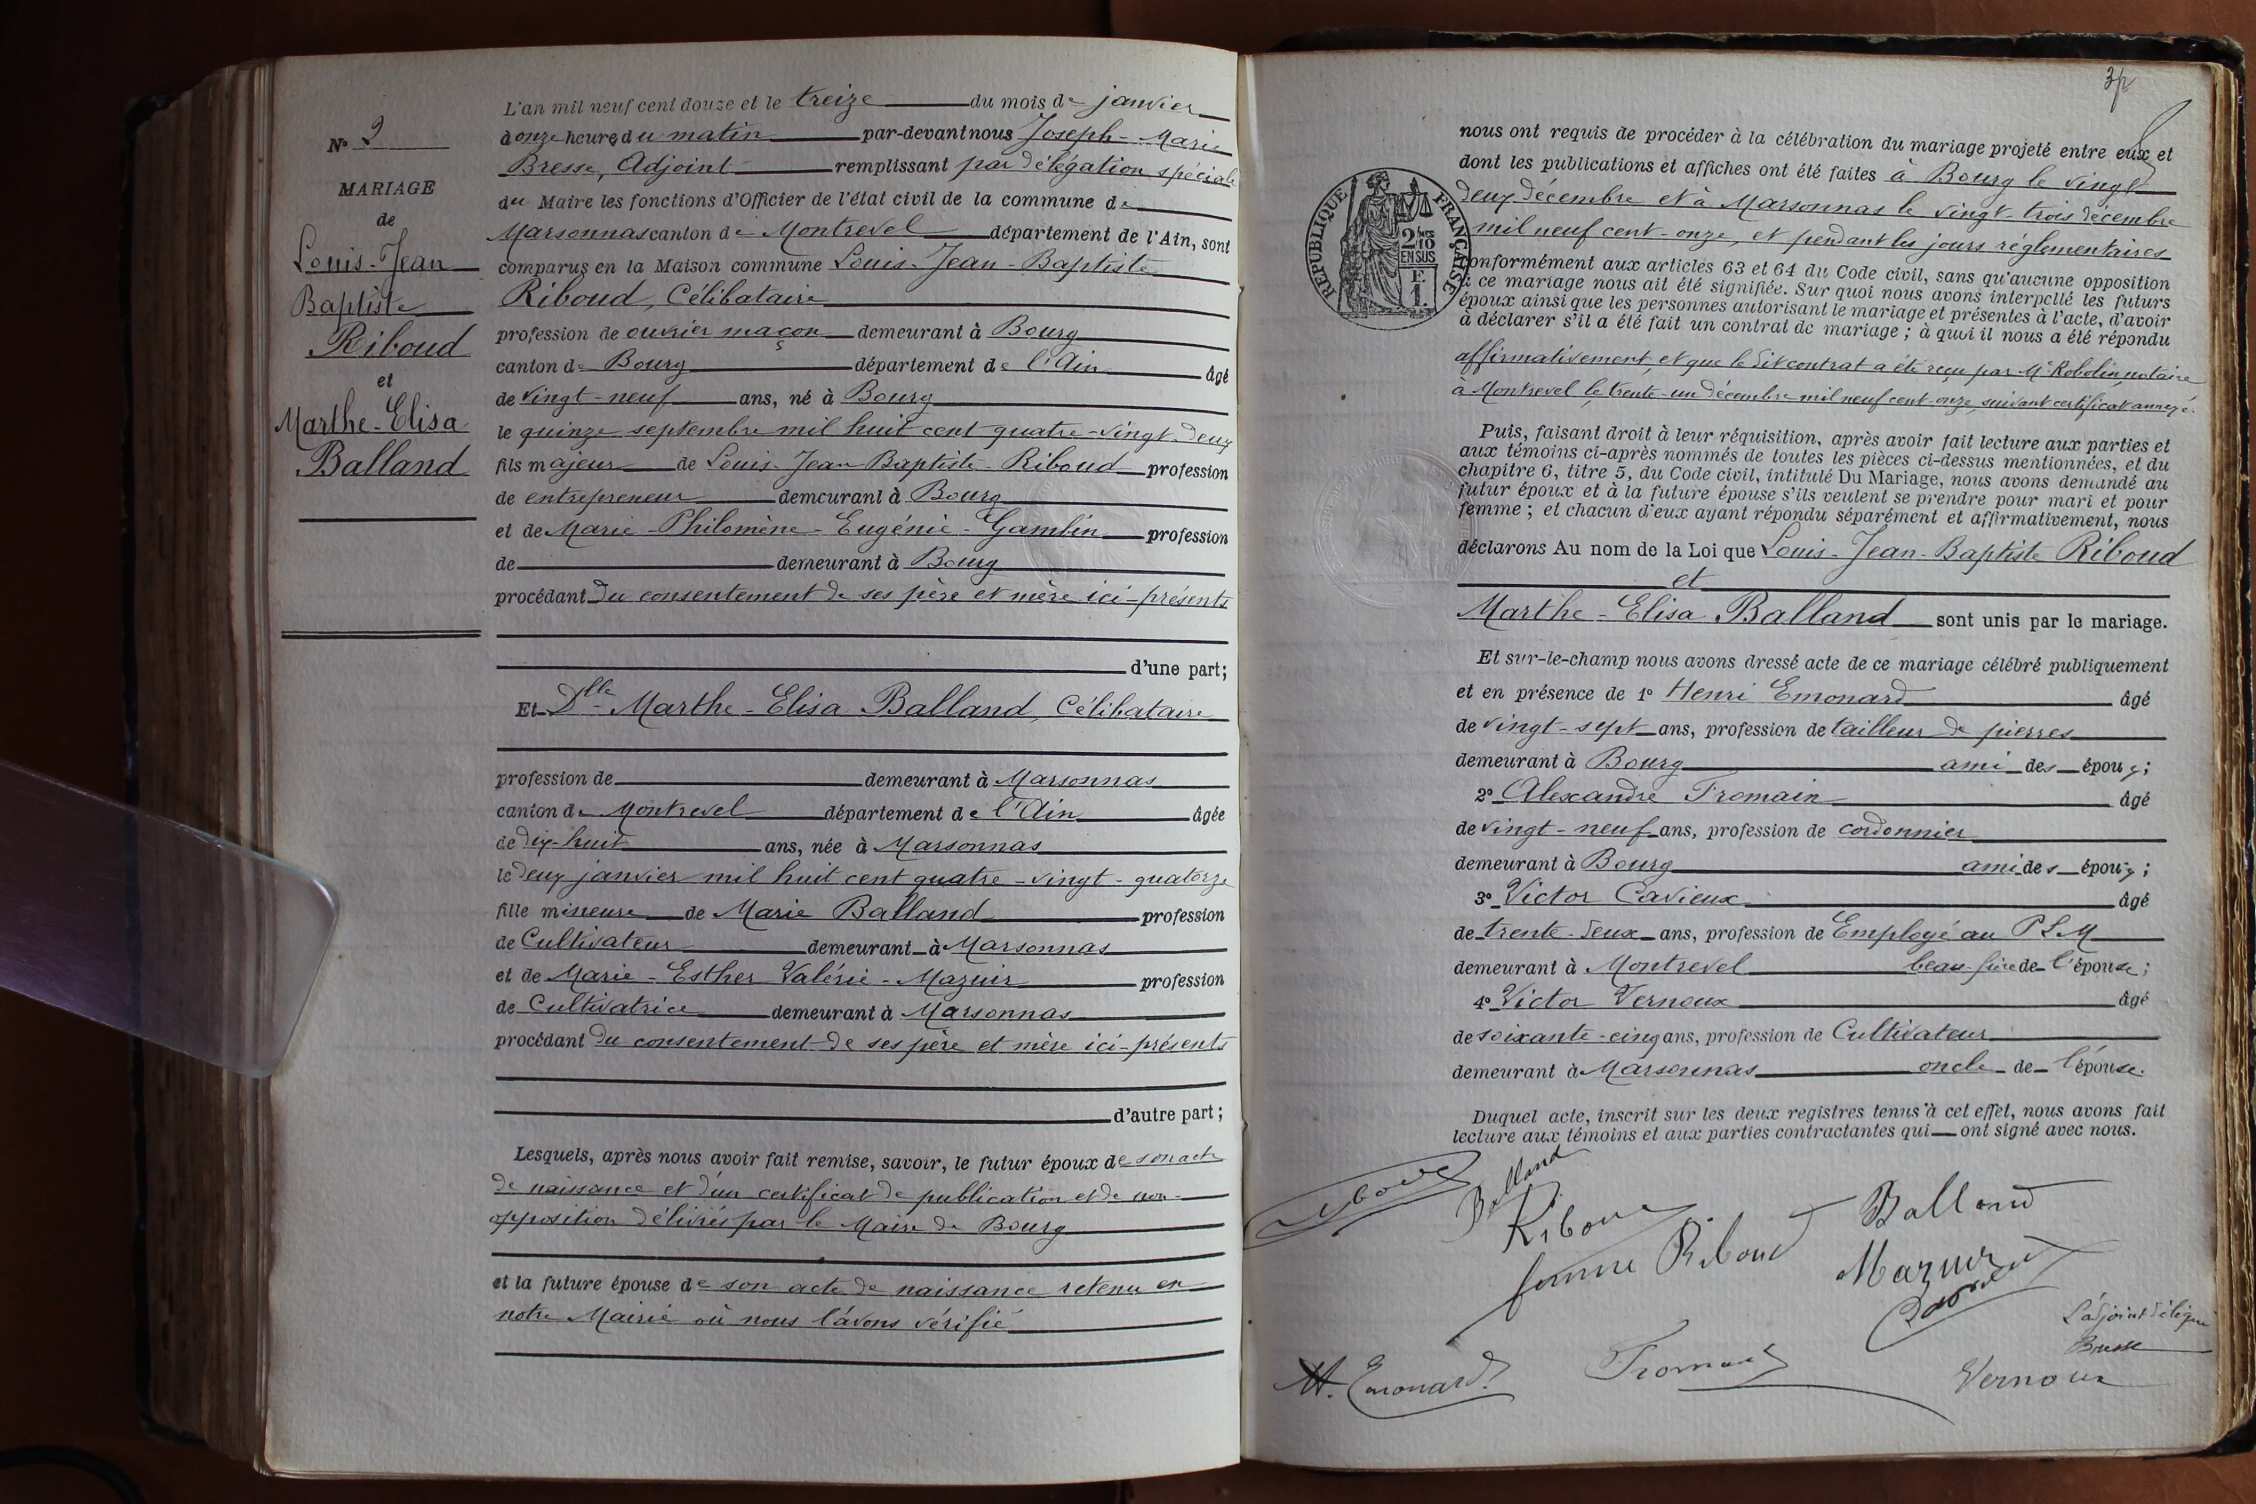 N° 2
MARIAGE
de
Louis-Jean
Baptiste
Riboud
et
Marthe-Elisa
Balland
L'an mil neuf cent douze et le treize du mois de janvier
à onze heures du matin par-devant nous Joseph-Marie
Bresse, Adjoint remplissant par délégation spéciale
du Maire les fonctions d'Officier de l'état civil de la commune de
Marsonnas canton de Montrevel département de l'Ain, sont
comparus en la Maison commune Louis-Jean-Baptiste
Riboud, Célibataire
profession de ouvrier maçon demeurant à Bourg
canton de Bourg département de l'Ain âgé
de vingt-neuf ans, né à Bourg
le quinze septembre mil huit cent quatre-vingt-deux
fils majeur de Louis-Jean-Baptiste Riboud profession
de entrepreneur demeurant à Bourg
et de Marie-Philomène-Eugénie-Gamblin profession
de demeurant à Bourg
procédant du consentement de ses père et mère ici-présents
d'une part;
Et Dlle Marthe-Elisa Balland, Célibataire
profession de demeurant à Marsonnas
canton de Montrevel département de l'Ain âgée
de dix-huit ans, née à Marsonnas
le deux janvier mil huit cent quatre-vingt-quatorze
fille mineure de Marie Balland profession
de Cultivateur demeurant à Marsonnas
et de Marie-Esther Valérie-Mazuir profession
de Cultivatrice demeurant à Marsonnas
procédant du consentement de ses père et mère ici-présents
d'autre part;
Lesquels, après nous avoir fait remise, savoir, le futur époux de son acte
de naissance et d'un certificat de publication et de non-
opposition délivrés par le Maire de Bourg
et la future épouse de son acte de naissance retenu en
notre Mairie où nous l'avons vérifié
nous ont requis de procéder à la célébration du mariage projeté entre eux et
dont les publications et affiches ont été faites à Bourg le vingt
deux décembre et à Marsonnas le vingt-trois décembre
mil neuf cent-onze, et pendant les jours réglementaires
conformément aux articles 63 et 64 du Code civil, sans qu'aucune opposition
à ce mariage nous ait été signifiée. Sur quoi nous avons interpellé les futurs
époux ainsi que les personnes autorisant le mariage et présentes à l'acte, d'avoir
à déclarer s'il a été fait un contrat de mariage; à quoi il nous a été répondu
affirmativement, et que le dit contrat a été reçu par Me Robolin, notaire
à Montrevel le trente-un décembre mil neuf cent-onze, suivant certificat annexé.
RÉPUBLIQUE FRANÇAISE
2/10
EN SUS
F
1.
Puis, faisant droit à leur réquisition, après avoir fait lecture aux parties et
aux témoins ci-après nommés de toutes les pièces ci-dessus mentionnées, et du
chapitre 6, titre 5, du Code civil, intitulé Du Mariage, nous avons demandé au
futur époux et à la future épouse s'ils veulent se prendre pour mari et pour
femme; et chacun d'eux ayant répondu séparément et affirmativement, nous
déclarons Au nom de la Loi que Louis-Jean-Baptiste Riboud
et
Marthe-Elisa Balland sont unis par le mariage.
Et sur-le-champ nous avons dressé acte de ce mariage célébré publiquement
et en présence de 1° Henri Emonard âgé
de vingt-sept ans, profession de tailleur de pierres
demeurant à Bourg ami des époux;
2° Alexandre Fromain âgé
de vingt-neuf ans, profession de cordonnier
demeurant à Bourg ami des époux;
3° Victor Cavieux âgé
de trente-deux ans, profession de Employé au PLM
demeurant à Montrevel beau-frère de l'épouse;
4° Victor Vernoux âgé
de soixante-cinq ans, profession de Cultivateur
demeurant à Marsonnas oncle de l'épouse.
Duquel acte, inscrit sur les deux registres tenus à cet effet, nous avons fait
lecture aux témoins et aux parties contractantes qui ont signé avec nous.
Riboud Balland
Riboud Balland
femme Riboud Mazuir
Cavieux
L'adjoint délégué
Bresse
H. Emonard Fromain Vernoux